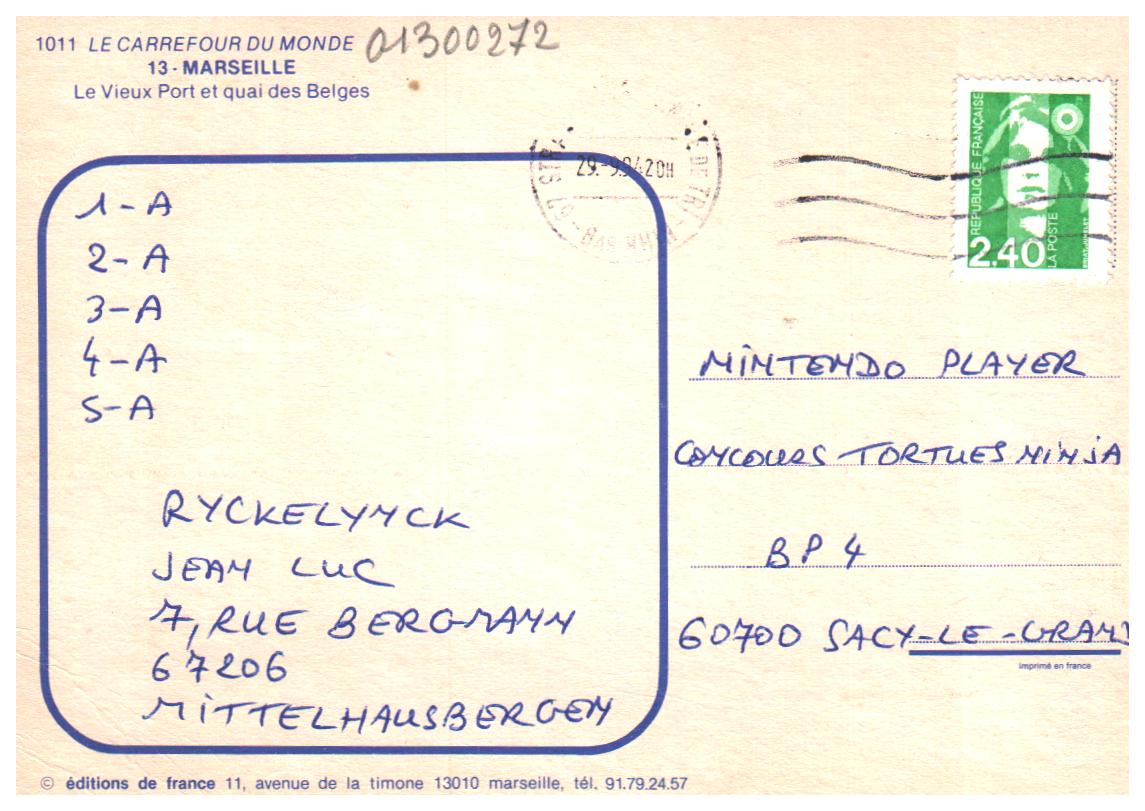 1011 LE CARREFOUR DU MONDE 01300272
13 - MARSEILLE
Le Vieux Port et quai des Belges
29.-9.94.20H
67 - BAS RHIN
DE TRI
RÉPUBLIQUE FRANÇAISE
LA POSTE
2.40
1-A
2-A
3-A
4-A
5-A
RYCKELYNCK
JEAN LUC
7, RUE BERGMANN
67206
MITTELHAUSBERGEN
NINTENDO PLAYER
CONCOURS TORTUES NINJA
BP 4
60700 SACY-LE-GRAND
imprimé en france
© éditions de france 11, avenue de la timone 13010 marseille, tél. 91.79.24.57